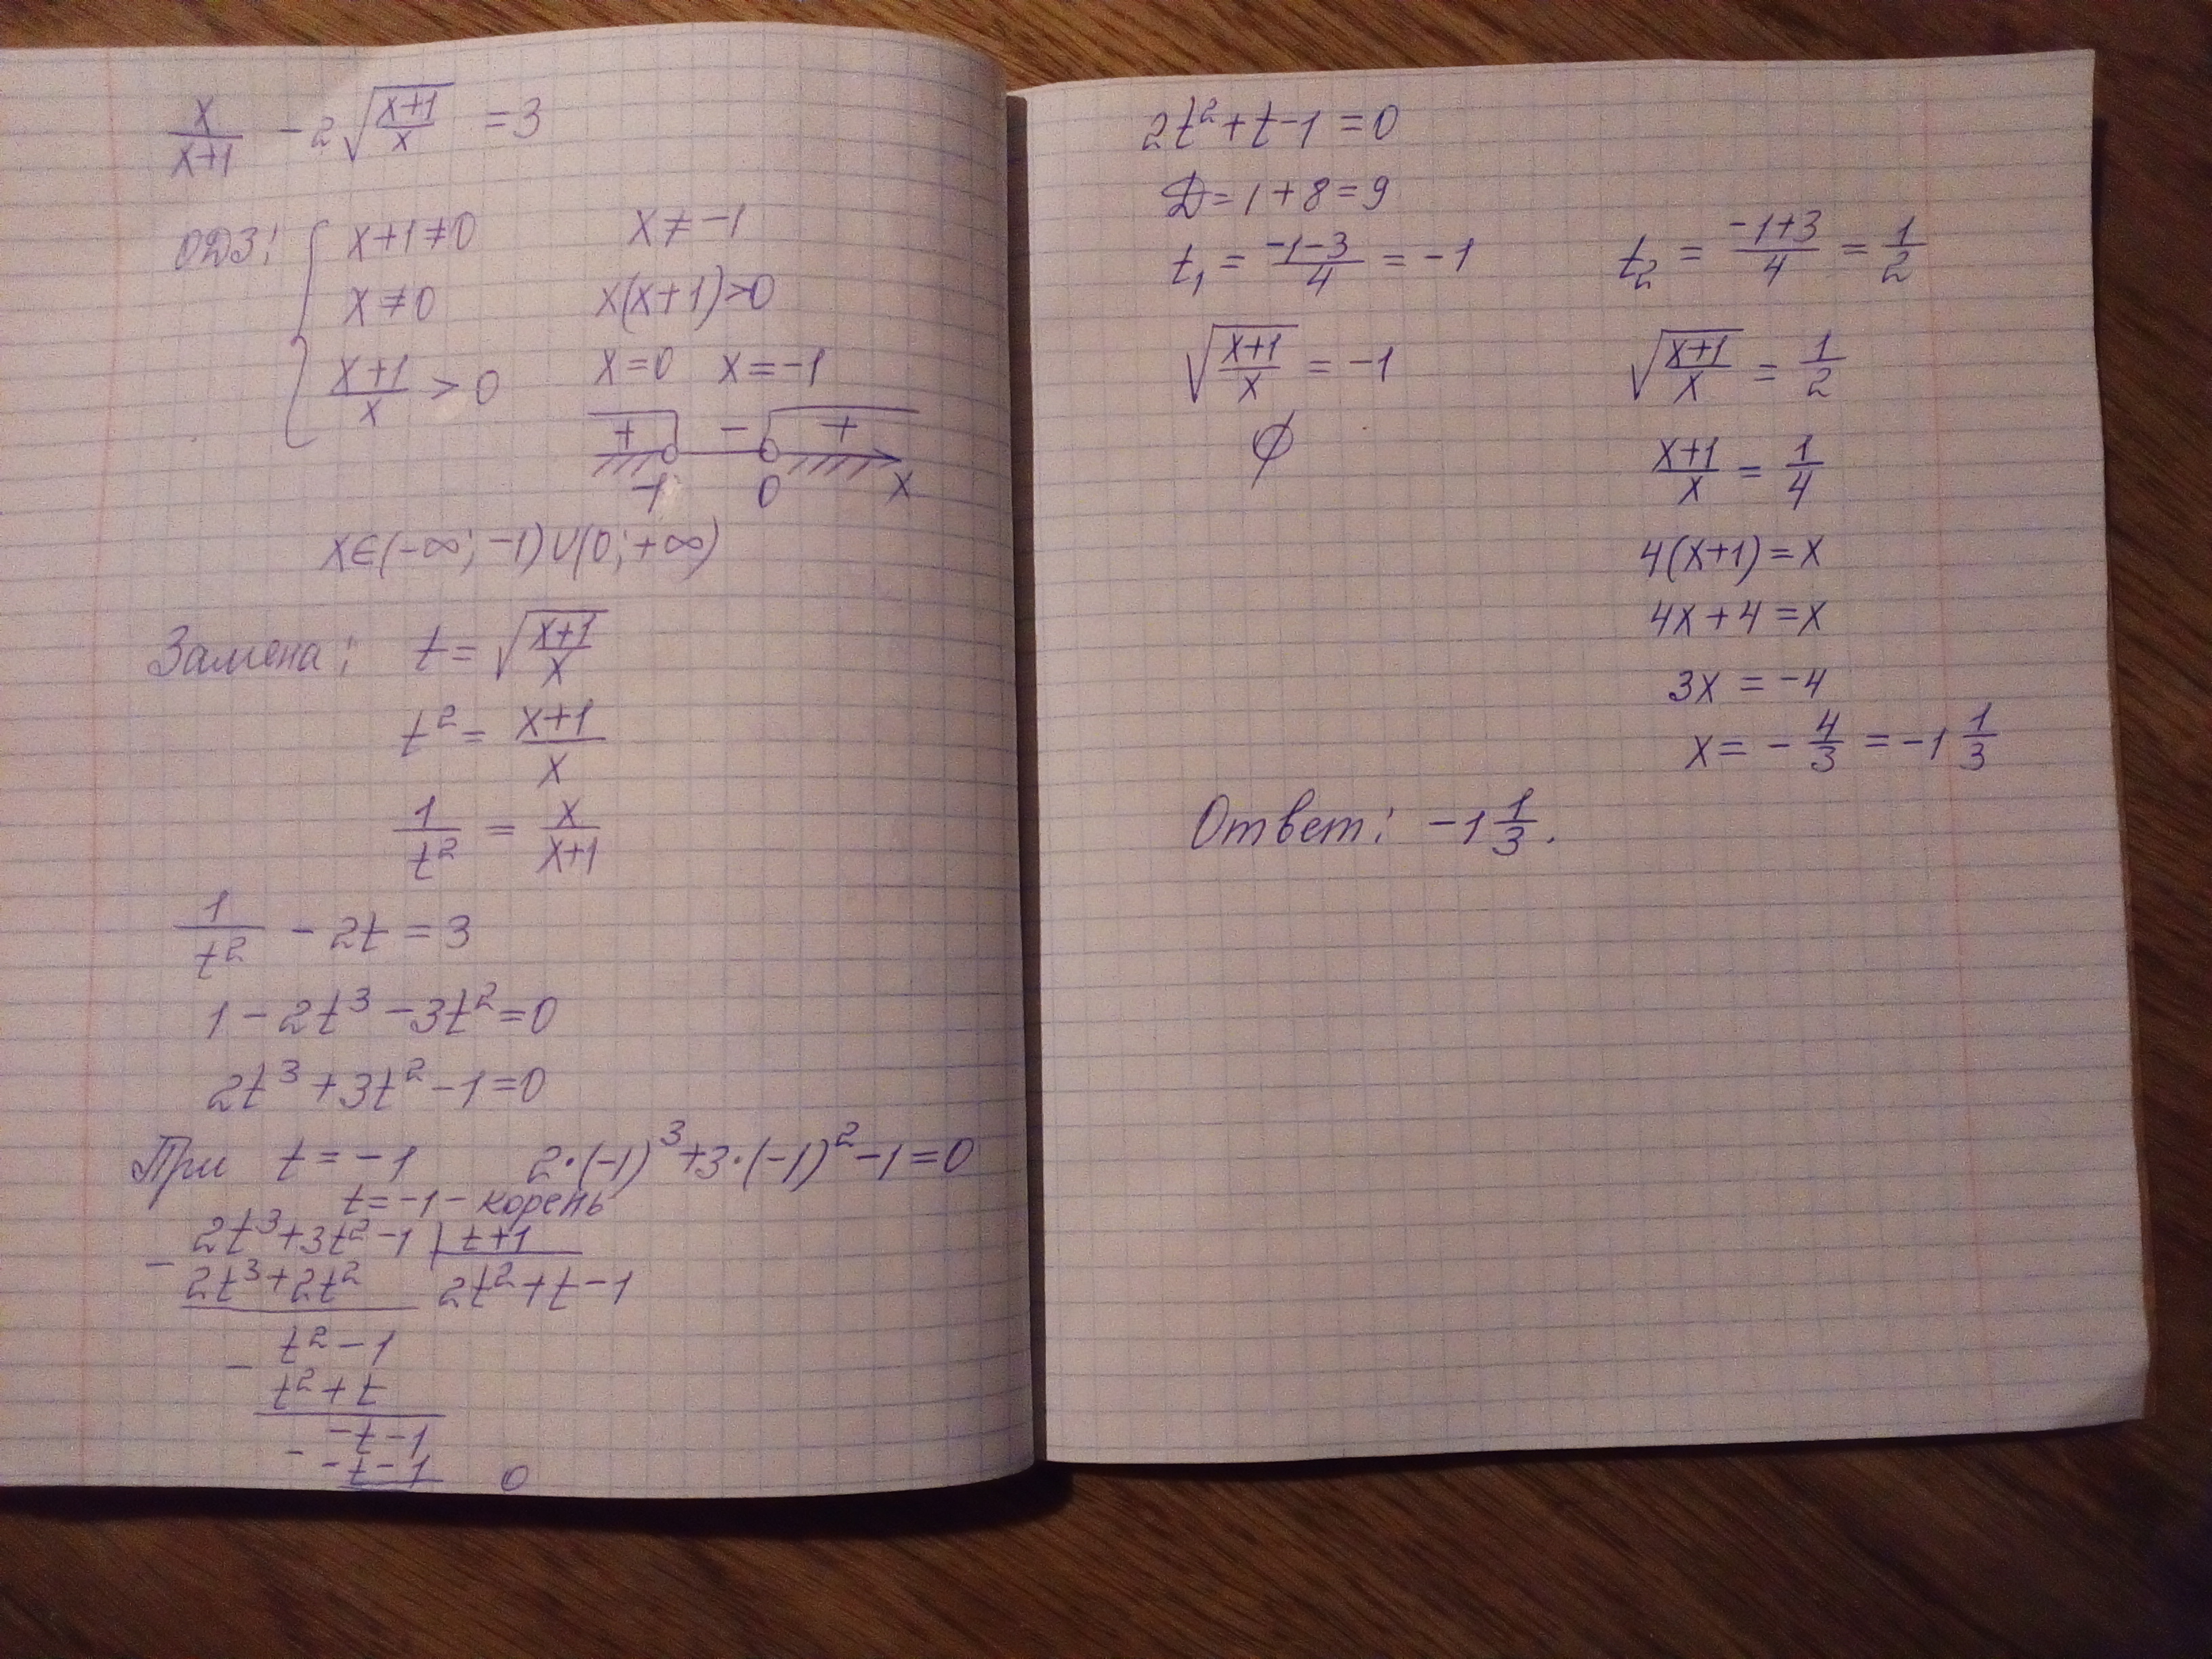 x/(x+1) - 2√((x+1)/x) = 3
ОДЗ: { x+1≠0 x≠-1
x≠0 x(x+1)>0
(x+1)/x > 0 x=0 x=-1
+ - +
-1 0 x
x∈(-∞; -1)∪(0; +∞)
Замена: t = √((x+1)/x)
t² = (x+1)/x
1/t² = x/(x+1)
1/t² - 2t = 3
1 - 2t³ - 3t² = 0
2t³ + 3t² - 1 = 0
При t = -1 2·(-1)³+3·(-1)²-1=0
t = -1 - корень
- 2t³+3t²-1 | t+1
2t³+2t² 2t²+t-1
- t²-1
t²+t
- -t-1
-t-1
0
2t²+t-1=0
D=1+8=9
t₁ = (-1-3)/4 = -1 t₂ = (-1+3)/4 = 1/2
√((x+1)/x) = -1 √((x+1)/x) = 1/2
∅ (x+1)/x = 1/4
4(x+1)=x
4x+4=x
3x=-4
x = -4/3 = -1 1/3
Ответ: -1 1/3.